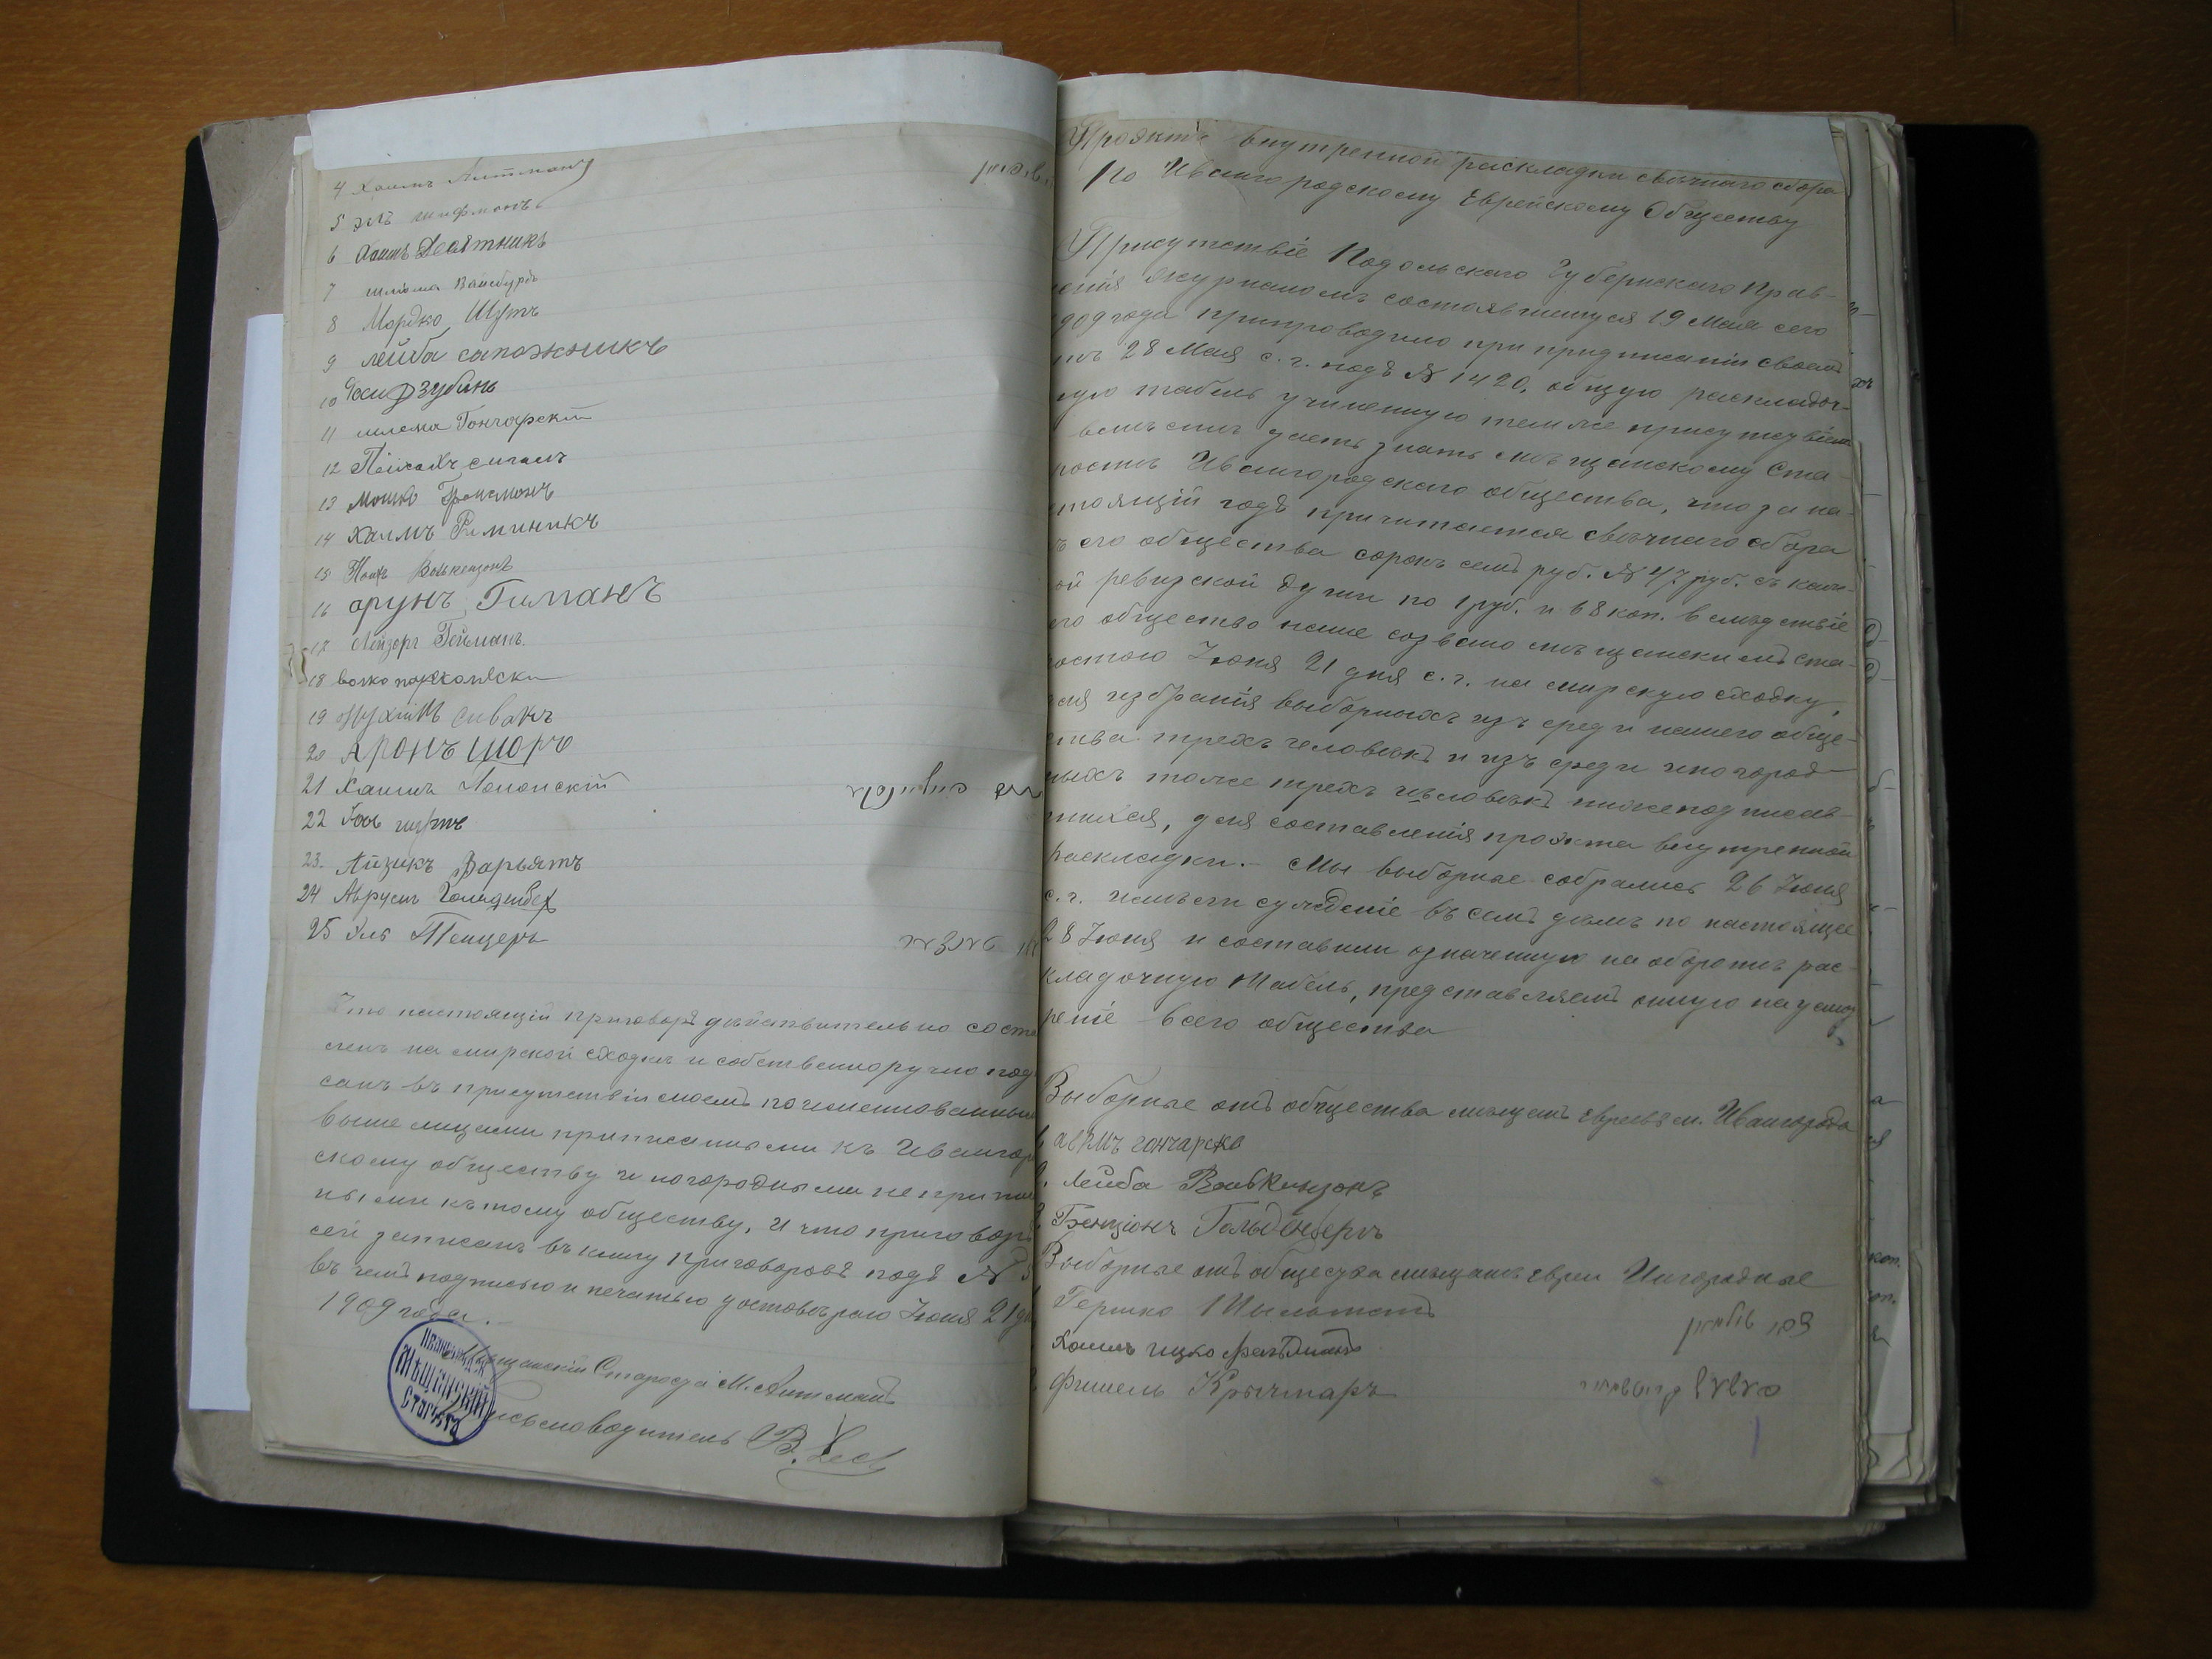 4 Хаимъ Литманъ
5 Эль Шифманъ
6 Хаимъ Десятникъ
7 шліома Вайсбурдъ
8 Мордко Шутъ
9 лейба сапожникъ
10 зубинь
11 шлема Гончарскій
12 Пейсахъ сигалъ
13 Мошко
14 Хаимъ Риминикъ
15 Волькензонъ
16 арунъ Гилманъ
17 Лейзеръ Гейманъ.
18 волко
19 Нухимъ Сивакъ
20 Аронъ шоръ
21 Хаимъ Полонскій
22
23. Айзикъ Варьятъ
24 Аврумъ Гольденбер
25 Эль Тенцеръ
Что настоящій приговоръ дѣйствительно соста
ленъ на мирской сходкѣ и собственноручно под
санъ въ присутствіи моемъ поименованными
выше лицами приписанными къ Ивангор
скому обществу и иногородными не припис
ными къ тому обществу, и что приговоръ
сей записанъ въ книгу приговоровъ подъ №
въ чемъ подписью и печатью удостовѣряю Іюня 21 дн
1909 года.
Мѣщанскій Староста М. Литманъ
Письмоводитель В.
МѢЩАНСКІЙ
СТАРОСТА
Проэктъ внутренной раскладки свѣчнаго сбора
По Ивангородскому Еврейскому Обществу
Присутствіе Подольскаго Губернскаго Прав-
енія журналомъ состоявшимуся 19 Мая сего
909 года припроводило при предписаніи своемъ
отъ 28 Мая с. г. подъ № 1420, общую раскладоч-
ную табель учиненную темже присутствіемъ
вмѣстѣ дать знать мѣщанскому Ста-
ростѣ Ивангородскаго общества, что за на-
стоящій годъ причитается свѣчнаго сбора
съ его общества сорокъ семь руб. № 47 руб. съ каж-
ой ревизской души по 1 руб. и 68 коп. вслѣдствіе
его общество наше созвано мѣщанскимъ ста-
ростою Іюня 21 дня с. г. на мирскую сходку,
для избранія выборныхъ изъ среди нашего обще-
ства трехъ человѣкъ и изъ среди иногород-
ныхъ тоже трехъ человѣкъ нижеподписав-
шихся, для составленія проэкта внутренной
раскладки. – Мы выборные собрались 26 Іюня
с. г. имѣли сужденіе въ семъ дѣлѣ по настоящее
28 Іюня и составили означенную на оборотѣ рас-
кладочную табель, представляемъ оную на усмот
реніе всего общества
Выборные отъ общества мѣщанъ Евреевъ м. Ивангорода
1, аврмъ гончарско
2. Лейба Волькензонъ
3 Бенціонъ Гольденбергъ
Выборные отъ общества мѣщанъ евреи Иногородные
Гершко Шильманъ
Хаимъ ицко фельдманъ
Фишель Крычмаръ